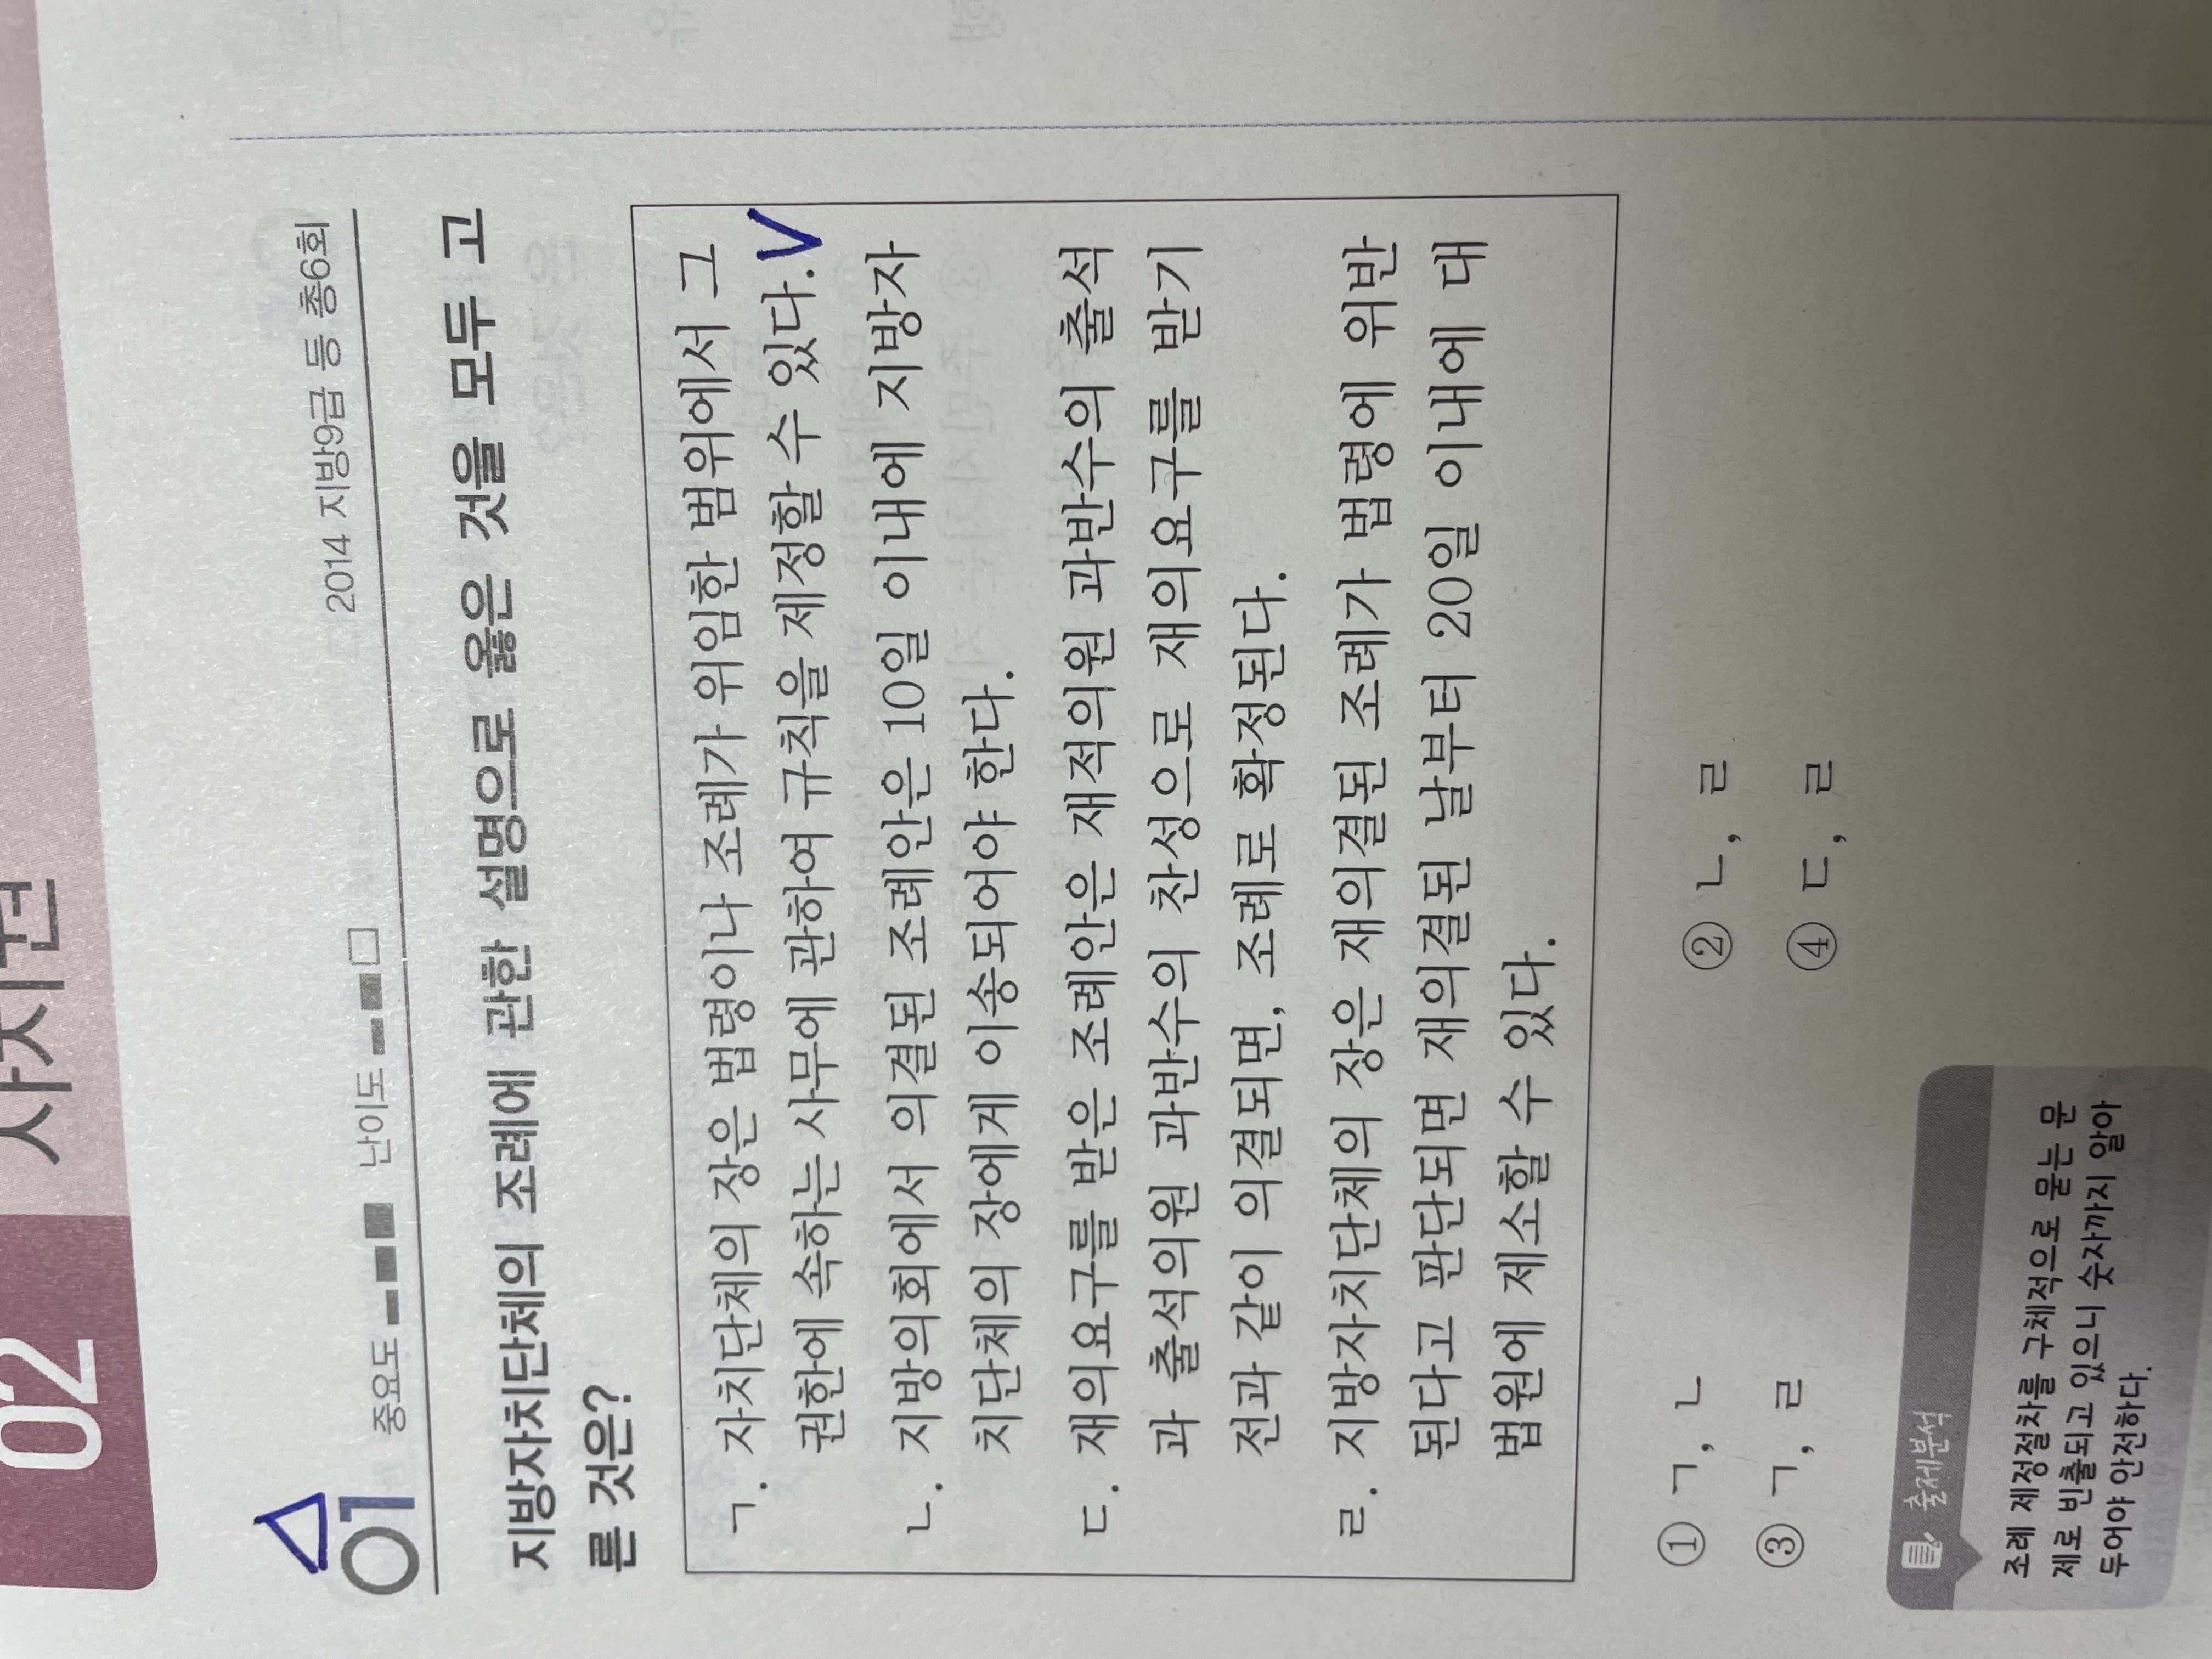 02 자치권
01 중요도 난이도 2014 지방9급 등 총6회
지방자치단체의 조례에 관한 설명으로 옳은 것을 모두 고
른 것은?
ㄱ. 자치단체의 장은 법령이나 조례가 위임한 범위에서 그
권한에 속하는 사무에 관하여 규칙을 제정할 수 있다.
ㄴ. 지방의회에서 의결된 조례안은 10일 이내에 지방자
치단체의 장에게 이송되어야 한다.
ㄷ. 재의요구를 받은 조례안은 재적의원 과반수의 출석
과 출석의원 과반수의 찬성으로 재의요구를 받기
전과 같이 의결되면, 조례로 확정된다.
ㄹ. 지방자치단체의 장은 재의결된 조례가 법령에 위반
된다고 판단되면 재의결된 날부터 20일 이내에 대
법원에 제소할 수 있다.
① ㄱ, ㄴ ② ㄴ, ㄹ
③ ㄱ, ㄹ ④ ㄷ, ㄹ
출제분석
조례 제정절차를 구체적으로 묻는 문
제로 빈출되고 있으니 숫자까지 알아
두어야 안전하다.